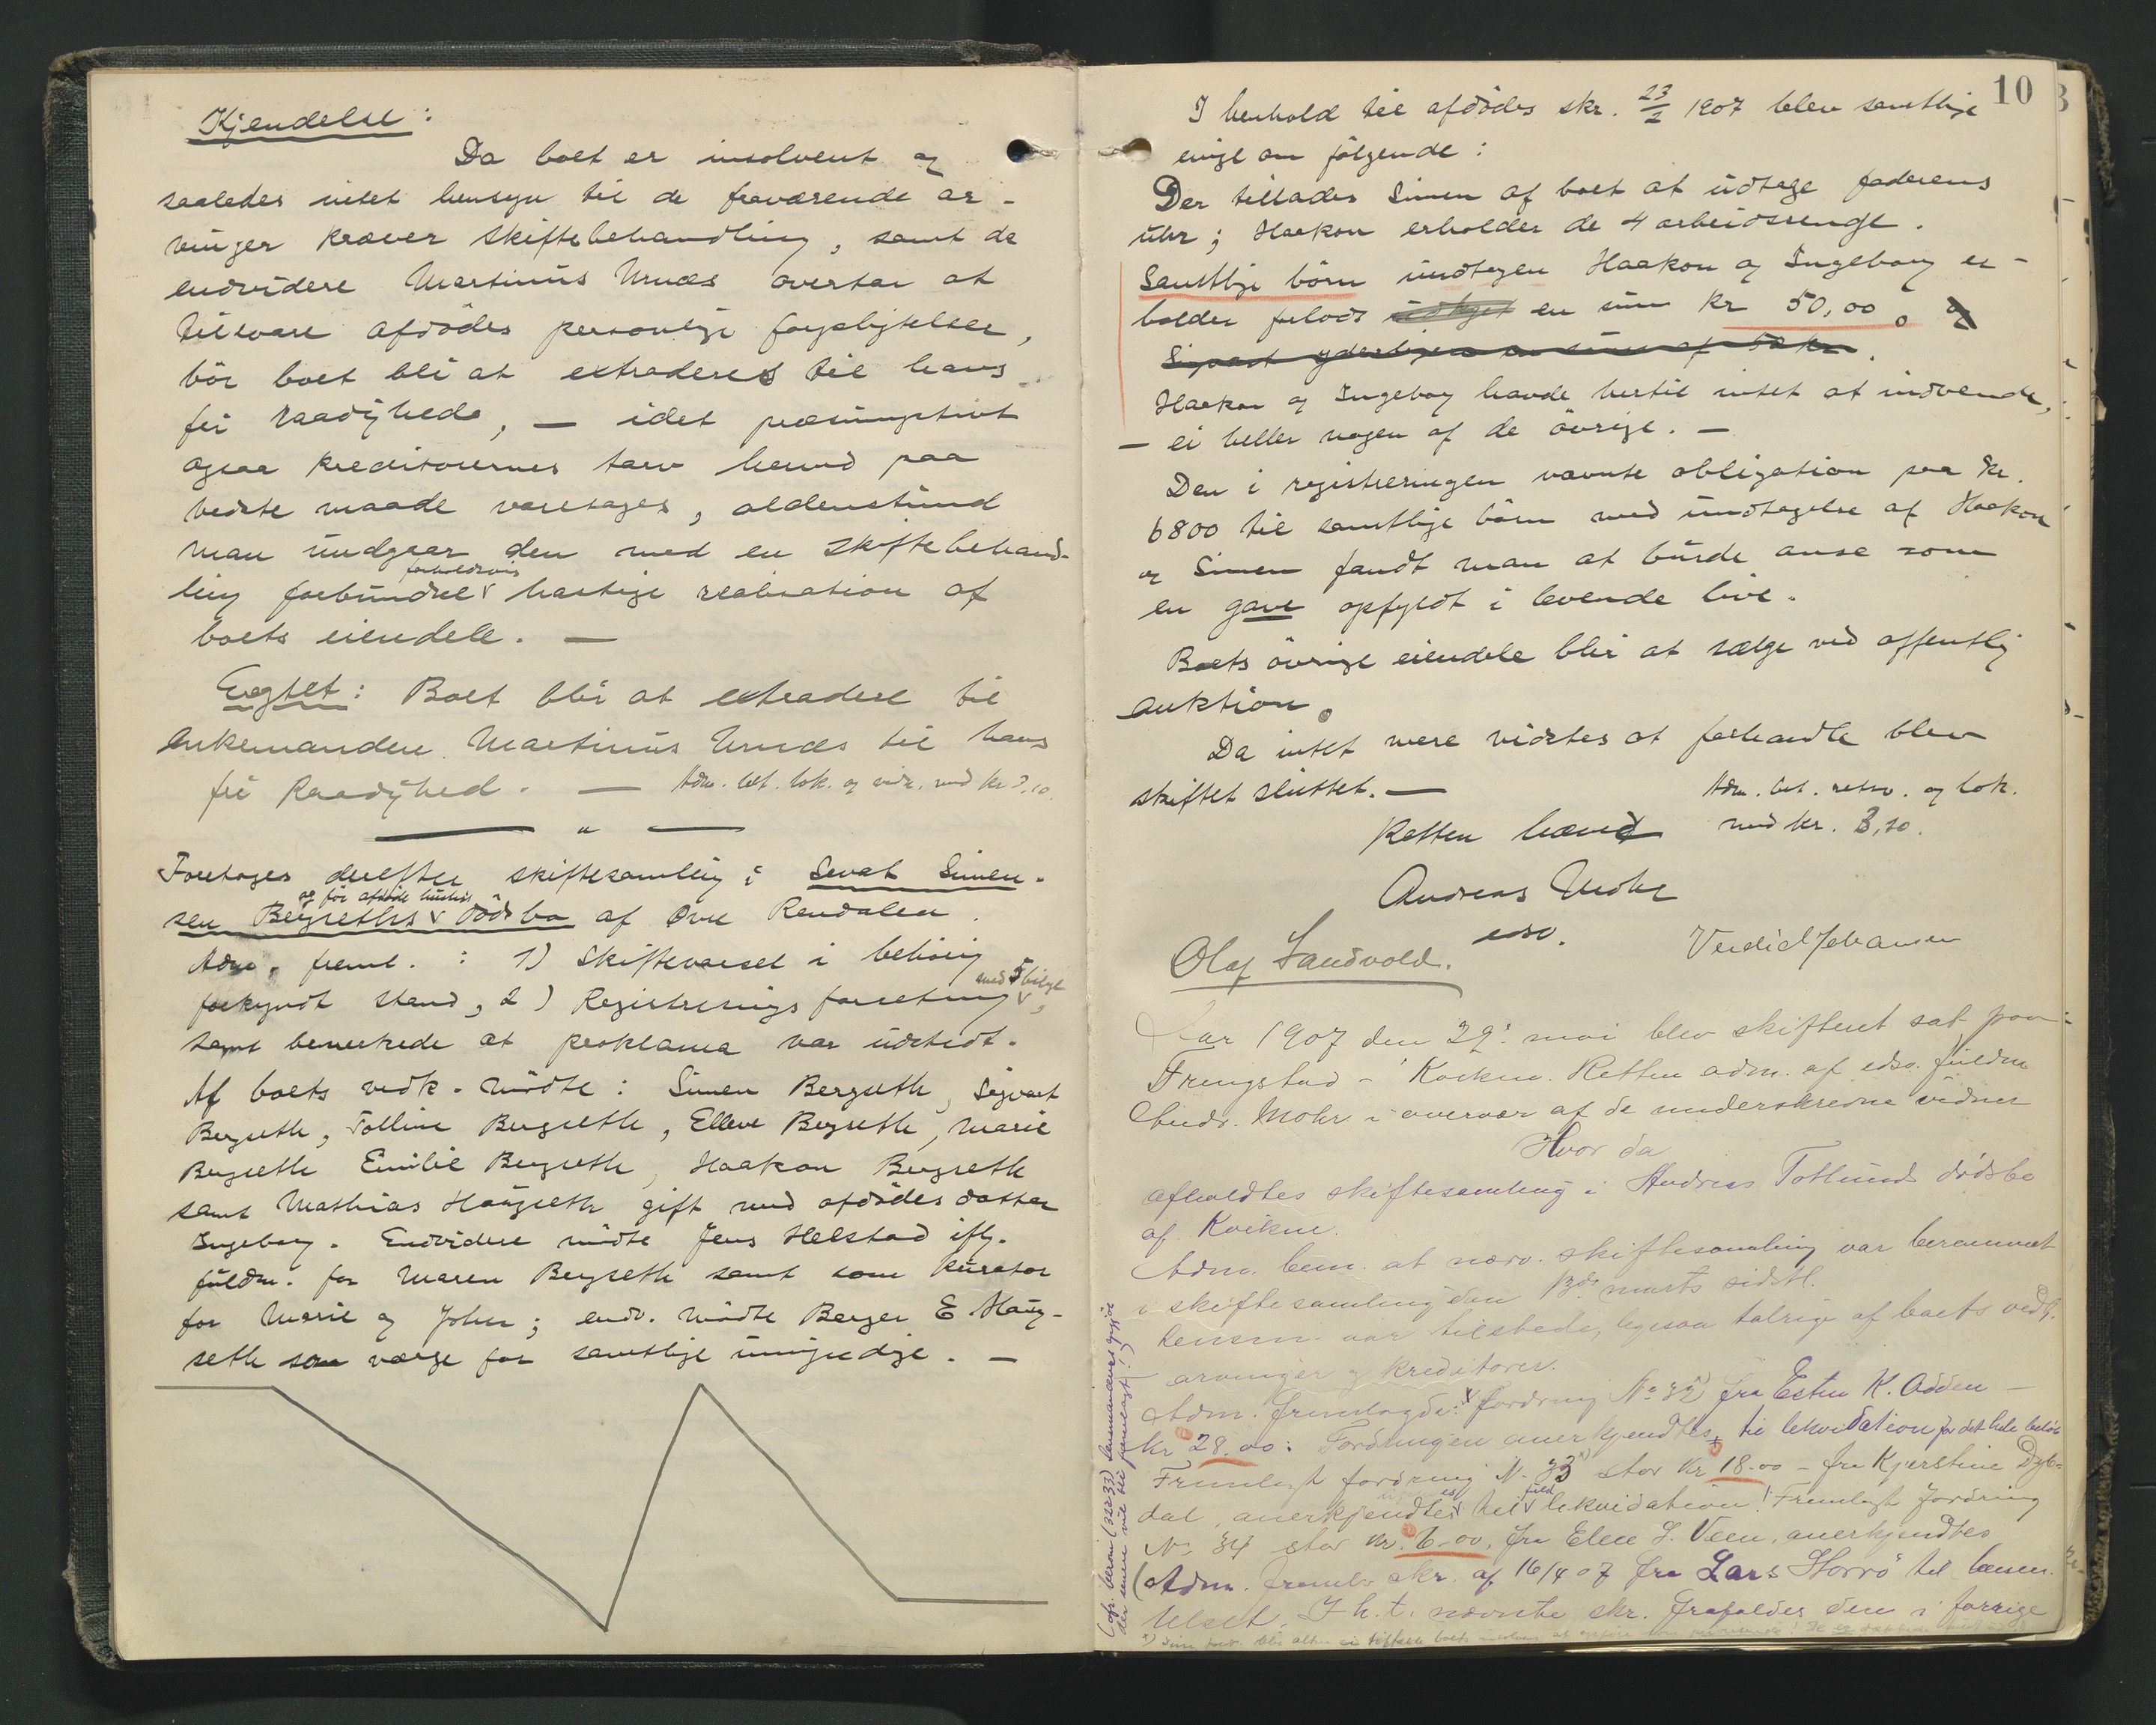 Kjendelse:
Da boet er insolvent og
saaledes intet hensyn til de fraværende ar-
vinger kræver skiftebehandling, samt da
endvidere Martinus Urnæs overtar at
tilsvare afdødes personlige forpligtelser,
bör boet bli at extraderes til hans
fri raadighed, — idet præsumptivt
ogsaa kreditorernes tarv herved paa
bedste maade varetages, aldenstund
man undgaar den med en skiftebehand-
ling forbundne forholdsvis hastige realisation af
boets eiendele. —
Eragtet: Boet blir at extradere til
enkemanden Martinus Urnæs til hans
fri Raadighed. — Adm. bet. lok. og vidn. med kr 3,10.
— " —
Foretages derefter skiftesamling i Sevat Simen-
og før afdøde hustrus
sen Bergseths dødsbo af Øvre Rendalen.
Adm. freml.: 1) Skiftevarsel i behörig
forkyndt stand, 2) Registreringsforretning med 5 bilage,
samt bemerkede at proklama var udstedt.
Af boets vedk. mödte: Simen Bergseth, Sigvart
Bergseth, Tolline Bergseth, Elleve Bergseth, Marie
Bergseth Emilie Bergseth, Haakon Bergseth
samt Mathias Haugseth gift med afdödes datter
Ingeborg. Endvidere mödte Jens Helstad iflg.
fuldm. for Maren Bergseth samt som kurator
for Marie og John; endv. mödte Berger E Haug-
seth som værge for samtlige umyndige. —
10
I henhold til afdödes skr. 23/2 1907 blev samtlige
enige om fölgende:
Der tillades Simen af boet at udtage faderens
uhr; Haakon erholder de 4 arbeidssenge.
Samtlige börn undtagen Haakon og Ingeborg er-
holder forlods en sum kr 50,00. og
Sigvart yderligere en sum af kr.
Haakon og Ingeborg havde hertil intet at indvende,
— ei heller nogen af de övrige. —
Den i registreringen nævnte obligation paa kr.
6800 til samtlige börn med undtagelse af Haakon
og Simen fandt man at burde anse som
en gave opfyldt i levende live.
Boets övrige eiendele blir at sælge ved offentlig
auktion.
Da intet mere vidstes at forhandle blev
skiftet sluttet. — Adm. bet. retsv. og lok.
Retten hævet med kr. 3,10.
Andreas Mohr
edsv.
Olaf Sandvold. Verdiel Johansen
Aar 1907 den 29: mai blev skifteret sat paa
Frengstad - Kvikne. Retten adm. af edsv. fuldm
Andr. Mohr i overvær af de underskrevne vidner
Hvor da
afholdtes skiftesamling i Andreas Totlunds dödsbo
af Kvikne.
Adm. bem. at nærv. skiftesamling var berammet
i skiftesamling den 13de marts sidstl.
Lensm. var tilstede, ligesaa talrige af boets vedk.
arvinger og kreditorer.
Adm. fremlagde: fordring No 32) fra Esten K. Odden —
kr 28.00: Fordringen anerkjendtes til likvidation for det hele belöb
Fremlagt fordring N. 33 stor kr 18.00 - fra Kjerstine Dyb-
dal, anerkjendtes til fuld likvidation! Fremlagt fordring
No 34 stor kr. 6.00, fra Elen L. Veen, anerkjendtes
(Adm. fremlv skr. af 16/4 07 fra Lars Horrö til lensm.
I h.t. nævnte skr. frafaldes den i forrige
(ofr. herom (32 & 33) lensmandens